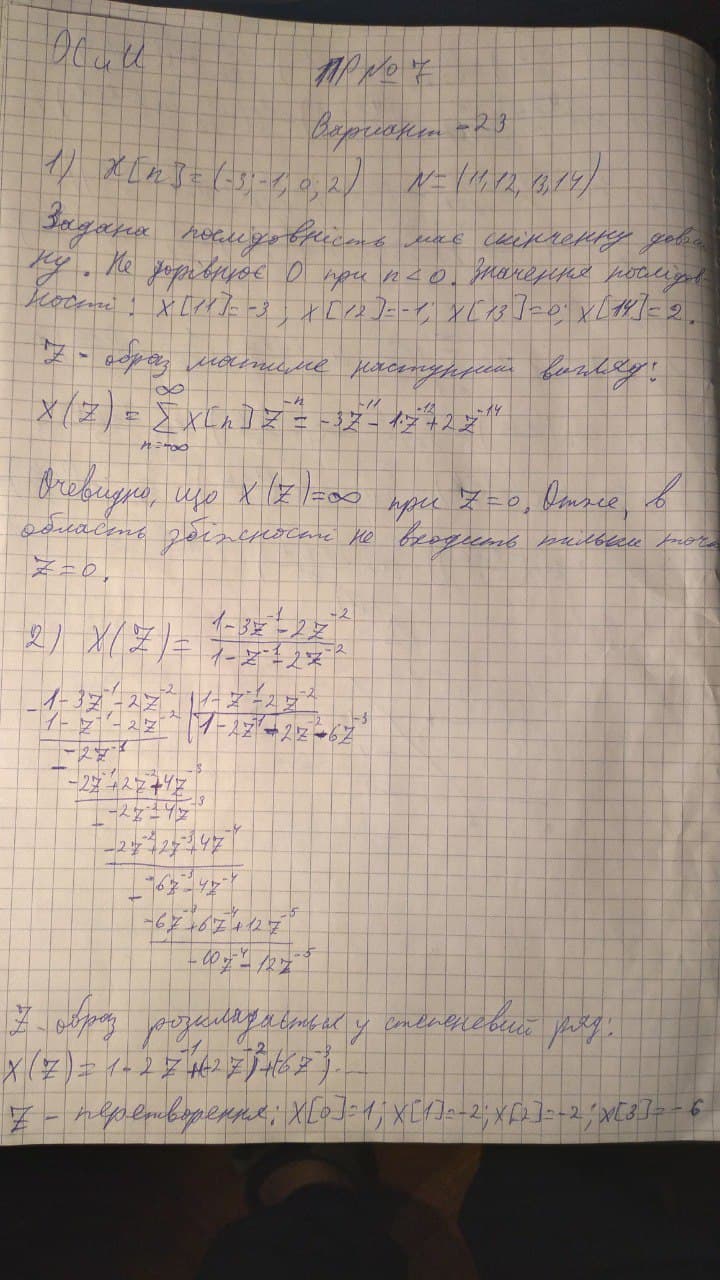 ОС и И
ПР №7
Вариант-23
1) X[n]=(-3;-1;0;2) N=(11,12,13,14)
Задана послідовність має скінченну довжи
ну. Не дорівнює 0 при n<0. Значення послідов-
ності: X[11]=-3; X[12]=-1; X[13]=0; X[14]=2.
Z-образ матиме наступний вигляд:
X(Z)=∑_{n=-∞}^{∞} X[n]Z^{-n}=-3Z^{-11}-1·Z^{-12}+2Z^{-14}
Очевидно, що X(Z)=∞ при Z=0. Отже, в
область збіжності не входить тільки точк
Z=0.
2) X(Z)=\frac{1-3Z^{-1}-2Z^{-2}}{1-Z^{-1}-2Z^{-2}}
-1-3Z^{-1}-2Z^{-2} | 1-Z^{-1}-2Z^{-2}
1-Z^{-1}-2Z^{-2} | 1-2Z^{-1}-2Z^{-2}-6Z^{-3}
- -2Z^{-1}
-2Z^{-1}+2Z^{-2}+4Z^{-3}
- -2Z^{-2}-4Z^{-3}
-2Z^{-2}+2Z^{-3}+4Z^{-4}
- -6Z^{-3}-4Z^{-4}
-6Z^{-3}+6Z^{-4}+12Z^{-5}
-10Z^{-4}-12Z^{-5}
Z-образ розкладається у степеневий ряд:
X(Z)=1-2Z^{-1}+(-2Z^{-2})+(-6Z^{-3})...
Z-перетворення: X[0]=1; X[1]=-2; X[2]=-2; X[3]=-6